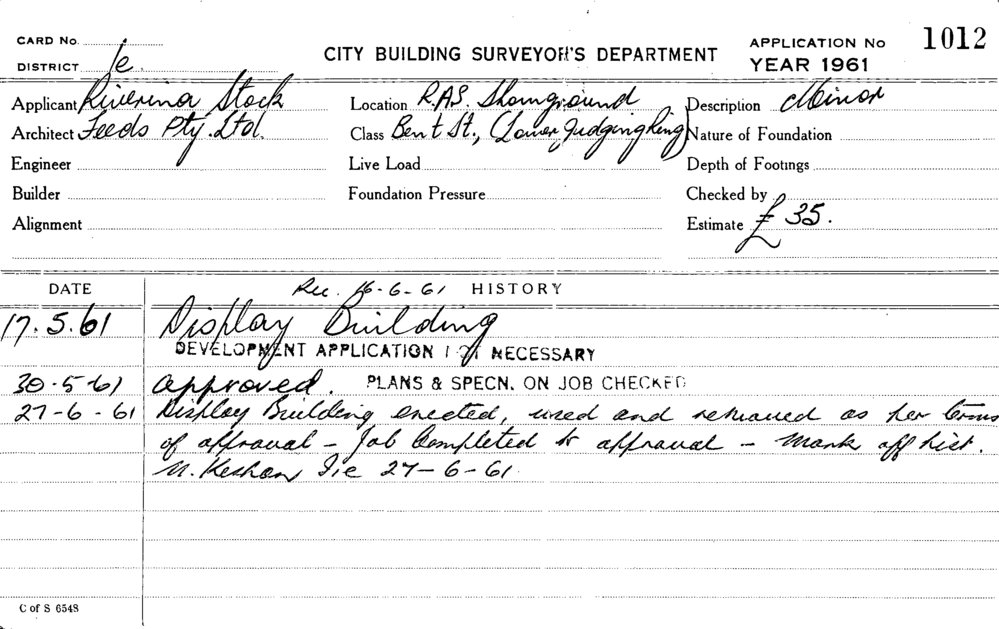 CARD No.
DISTRICT Ie.
CITY BUILDING SURVEYOR'S DEPARTMENT
APPLICATION No 1012
YEAR 1961
Applicant Riverina Stock
Location R.A.S. Showground
Description Minor
Architect Feeds Pty. Ltd.
Class Bent St., (Lower Judging Ring)
Nature of Foundation
Engineer
Live Load
Depth of Footings
Builder
Foundation Pressure
Checked by
Alignment
Estimate £ 35.
DATE
Rec. 16-6-61 HISTORY
17.5.61 Display Building
DEVELOPMENT APPLICATION NOT NECESSARY
30-5-61 Approved. PLANS & SPECN. ON JOB CHECKED
27-6-61 Display Building erected, used and removed as per terms
of approval - Job Completed to approval - Mark off list.
Ie 27-6-61
C of S 6548